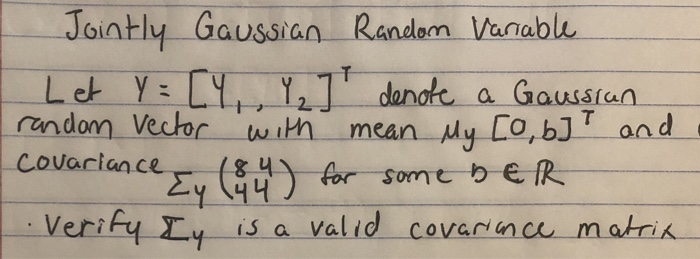 Jointly Gaussian Random Variable
Let Y = [Y₁, Y₂]ᵀ denote a Gaussian
random Vector with mean My [0,b]ᵀ and
covariance Σy (8 4
4 4) for some b ∈ ℝ
· Verify Σy is a valid covariance matrix